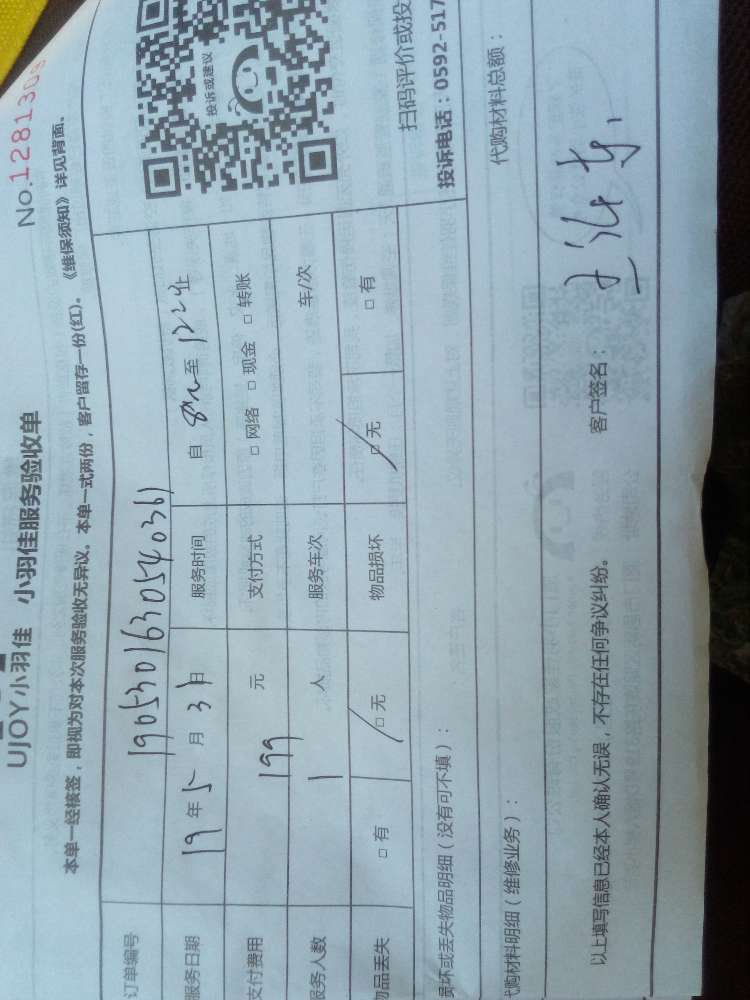 No.1281309
UJOY小羽佳 小羽佳服务验收单
本单一经核签，即视为对本次服务验收无异议。本单一式两份，客户留存一份(红)。《维保须知》详见背面。
订单编号 1905301630540361
服务日期 19年5月31日 服务时间 自 8:00 至 12:00
支付费用 199 元 支付方式 □网络 □现金 □转账
服务人数 1 人 服务车次 车/次
物品丢失 □有 □无 物品损坏 □无 □有
投诉或建议
扫码评价或投
投诉电话：0592-517
损坏或丢失物品明细（没有可不填）：
代购材料明细（维修业务）： 代购材料总额：
以上填写信息已经本人确认无误，不存在任何争议纠纷。 客户签名：